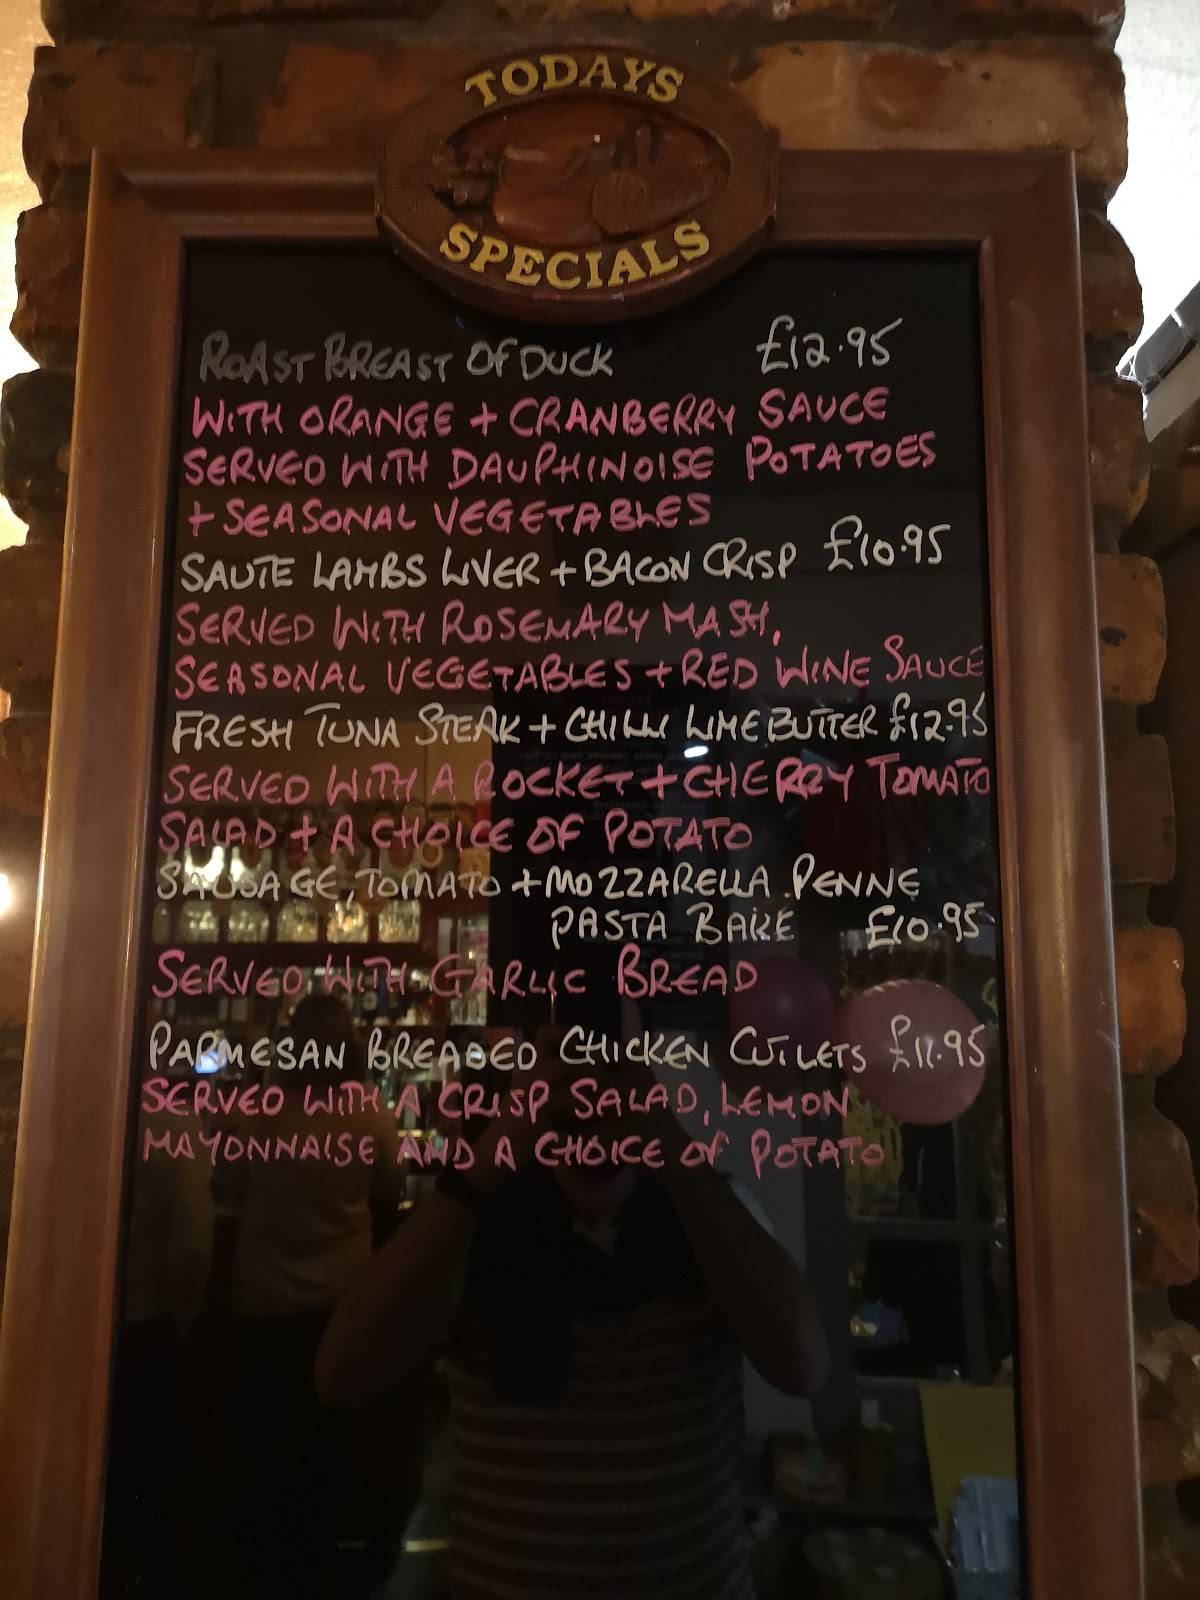 TODAYS
SPECIALS
ROAST BREAST OF DUCK £12.95
WITH ORANGE + CRANBERRY SAUCE
SERVED WITH DAUPHINOISE POTATOES
+ SEASONAL VEGETABLES
SAUTE LAMBS LIVER + BACON CRISP £10.95
SERVED WITH ROSEMARY MASH,
SEASONAL VEGETABLES + RED WINE SAUCE
FRESH TUNA STEAK + CHILLI LIME BUTTER £12.95
SERVED WITH A ROCKET + CHERRY TOMATO
SALAD + A CHOICE OF POTATO
SAUSAGE, TOMATO + MOZZARELLA PENNE
PASTA BAKE £10.95
SERVED WITH GARLIC BREAD
PARMESAN BREADED CHICKEN CUTLETS £11.95
SERVED WITH A CRISP SALAD, LEMON
MAYONNAISE AND A CHOICE OF POTATO